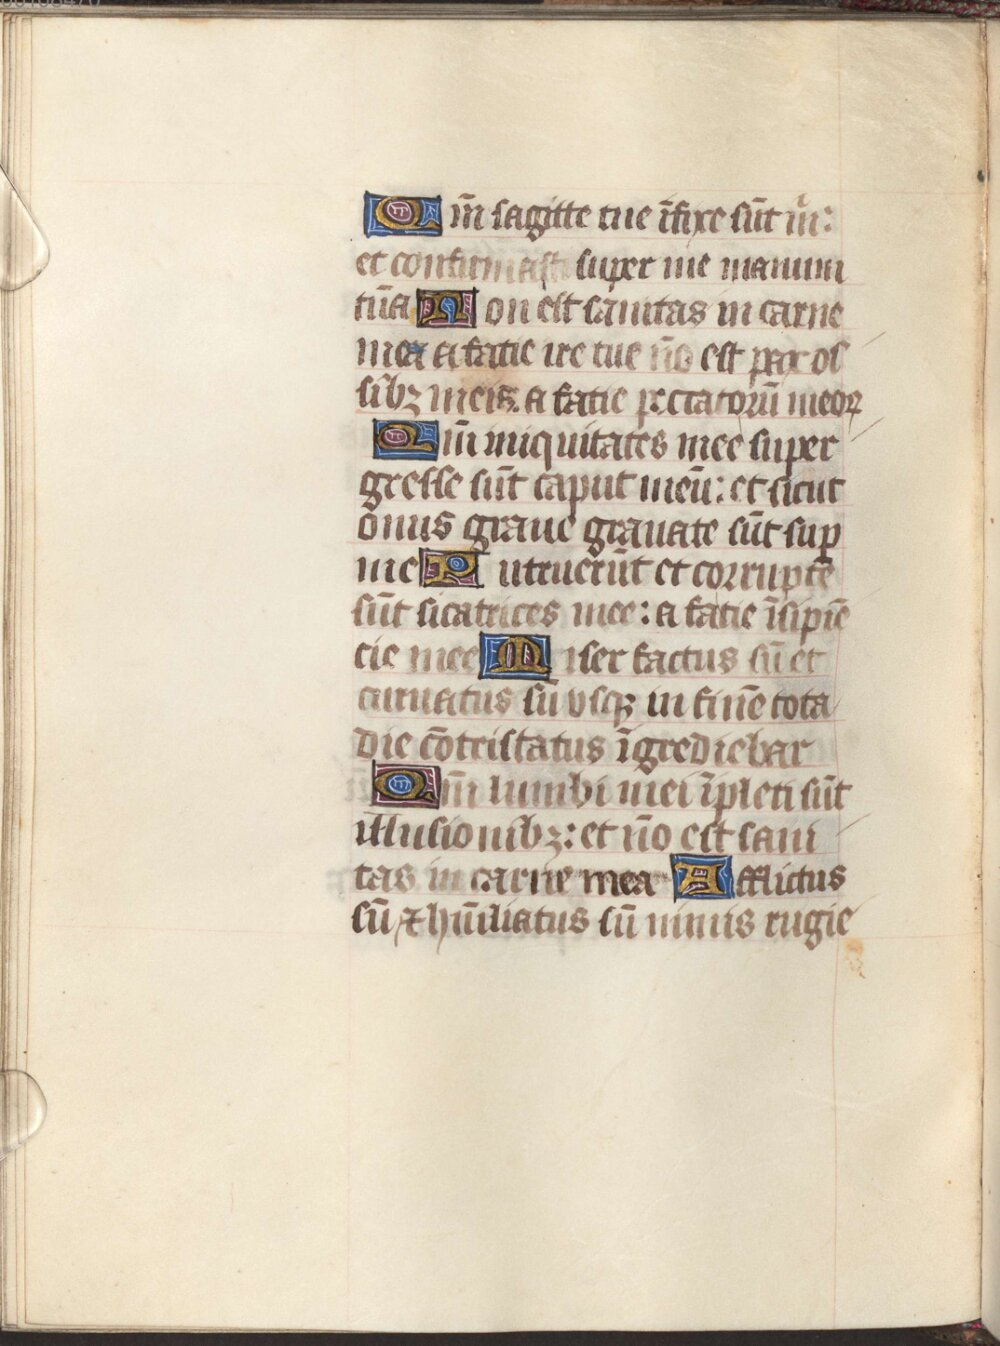 Qm̄ sagitte tue īfixe sūt m̄:
et confirmasti super me manum
tuā Non est sanitas in carne
mea a facie ire tue nō est pax os
sibꝫ meis. a facie peccatorū meoꝝ
Qm̄ iniquitates mee super
gresse sūt caput meū: et sicut
onus graue grauate sūt suꝑ
me Putruerūt et corrupte
sūt sicatrices mee: a facie īsipiē
cie mee Miser factus sū et
curuatus sū vsqꝫ in finē tota
die cōtristatus īgrediebar
Qm̄ lumbi mei īpleti sūt
illusionibꝫ: et nō est sani
tas in carne mea Afflictus
sū ⁊ hūiliatus sū nimis rugie